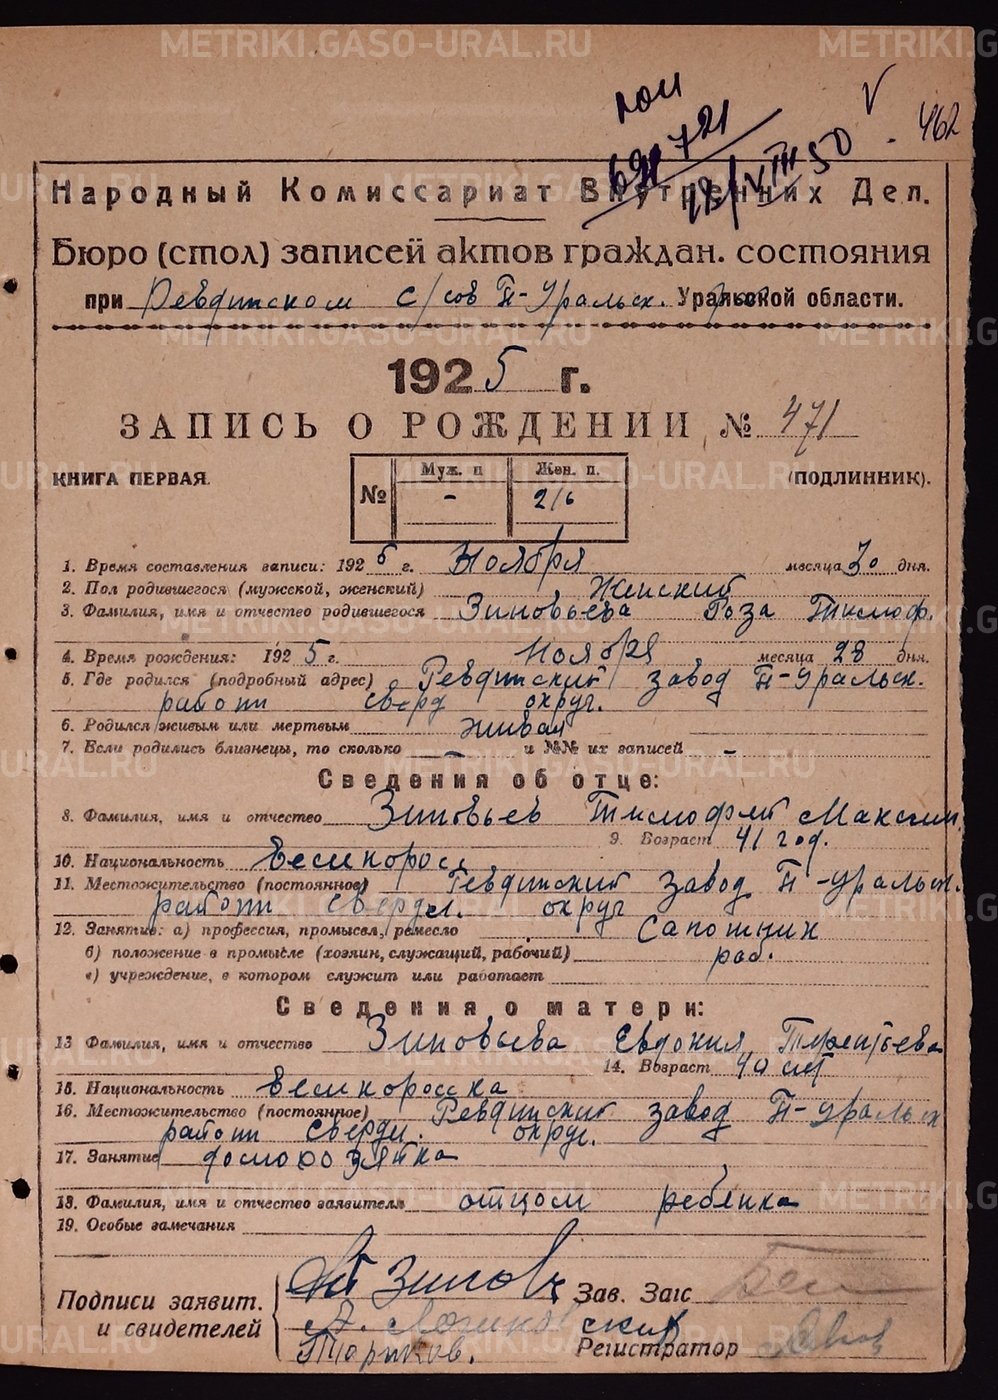 METRIKI.GASO-URAL.RU
V
462
691721
28/VIII 50
Народный Комиссариат Внутренних Дел.
Бюро (стол) записей актов граждан. состояния
при Ревдинском с/сов П-Уральск. Уральской области.
1925 г.
ЗАПИСЬ О РОЖДЕНИИ № 471
КНИГА ПЕРВАЯ.
(ПОДЛИННИК).
№ Муж. п Жен. п.
- 216
1. Время составления записи: 1925 г. Ноября месяца 30 дня.
2. Пол родившегося (мужской, женский) Женский
3. Фамилия, имя и отчество родившегося Зиновьева Роза Тимоф.
4. Время рождения: 1925 г. Ноября месяца 28 дня.
5. Где родился (подробный адрес) Ревдинский завод П-Уральск.
района сверд округ.
6. Родился живым или мертвым живая
7. Если родились близнецы, то сколько — и №№ их записей -
Сведения об отце:
8. Фамилия, имя и отчество Зиновьев Тимофей Максим.
9. Возраст 41 год.
10. Национальность Великоросс
11. Местожительство (постоянное) Ревдинский завод П-Уральск.
района свердл. округ
12. Занятие: а) профессия, промысел, ремесло Сапожник
б) положение в промысле (хозяин, служащий, рабочий) раб.
в) учреждение, в котором служит или работает
Сведения о матери:
13 Фамилия, имя и отчество Зиновьева Евдокия Терентьева
14. Возраст 40 лет
15. Национальность Великоросска
16. Местожительство (постоянное) Ревдинский завод П-Уральск
района свердл. округ.
17. Занятие домохозяйка
18. Фамилия, имя и отчество заявителя отцом ребенка
19. Особые замечания
Подписи заявит. и свидетелей
Зинов
Зав. Загс
Регистратор